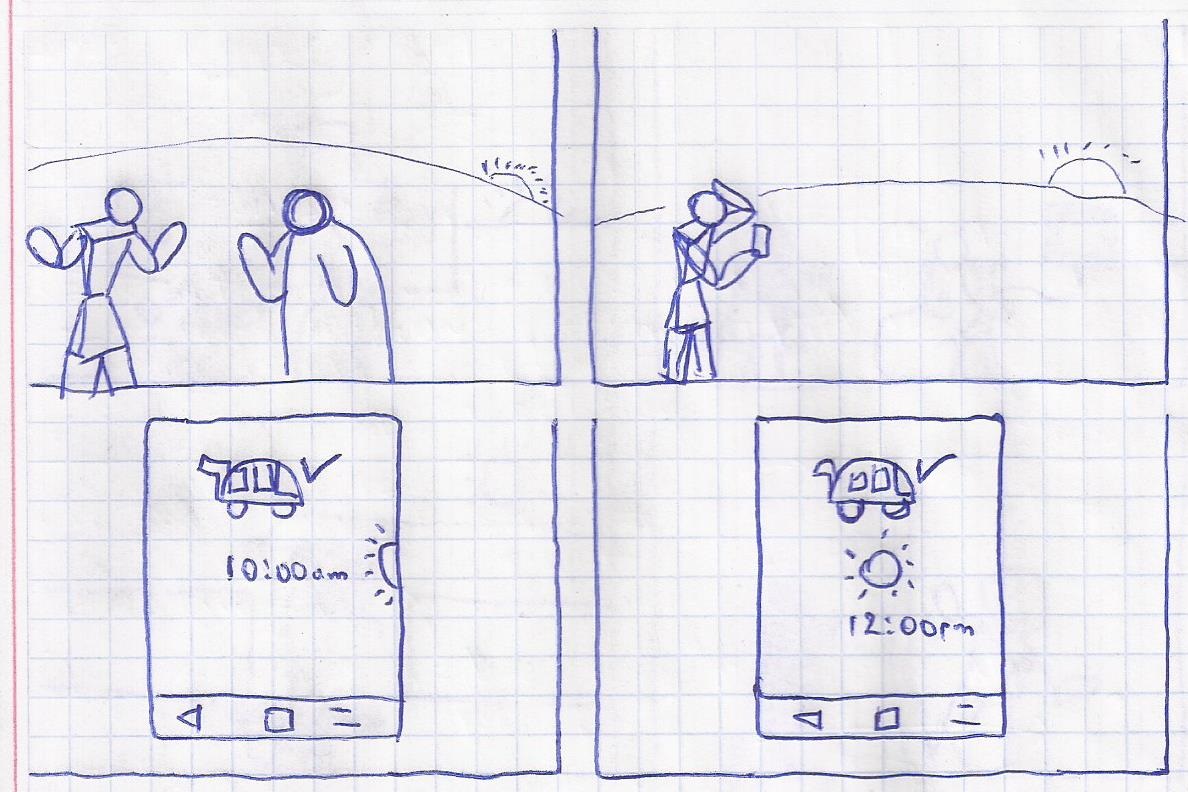 10:00am
12:00pm